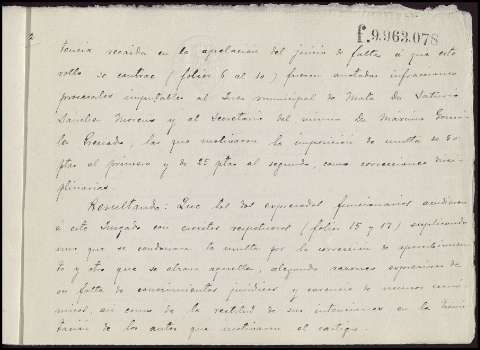 f.9.963.078
tencia recaida en la apelacion del juicio de faltas á que este
rollo se contrae (folios 6 al 10) fueron anotadas infracciones
procesales imputables al Juez municipal de Mata Dn Saturio
Sanchez Moreno y al Secretario del mismo Dn Maximo Gonza
lez Grenado, las que motivaron la imposicion de multa de 50
ptas al primero y de 25 ptas al segundo, como correcciones dis-
plinarias.
Resultando: Que los dos expresados funcionarios acudieron
á este Juzgado con escritos respectivos (folios 15 y 17) suplicando
uno que se condonara la multa por la correccion de apercibimien
to y otro que se alzara aquella, alegando razones expresivas de
su falta de conocimientos juridicos y carencia de recursos econó
micos, asi como de la rectitud de sus intenciones en la trami
tacion de los autos que motivaron el castigo.